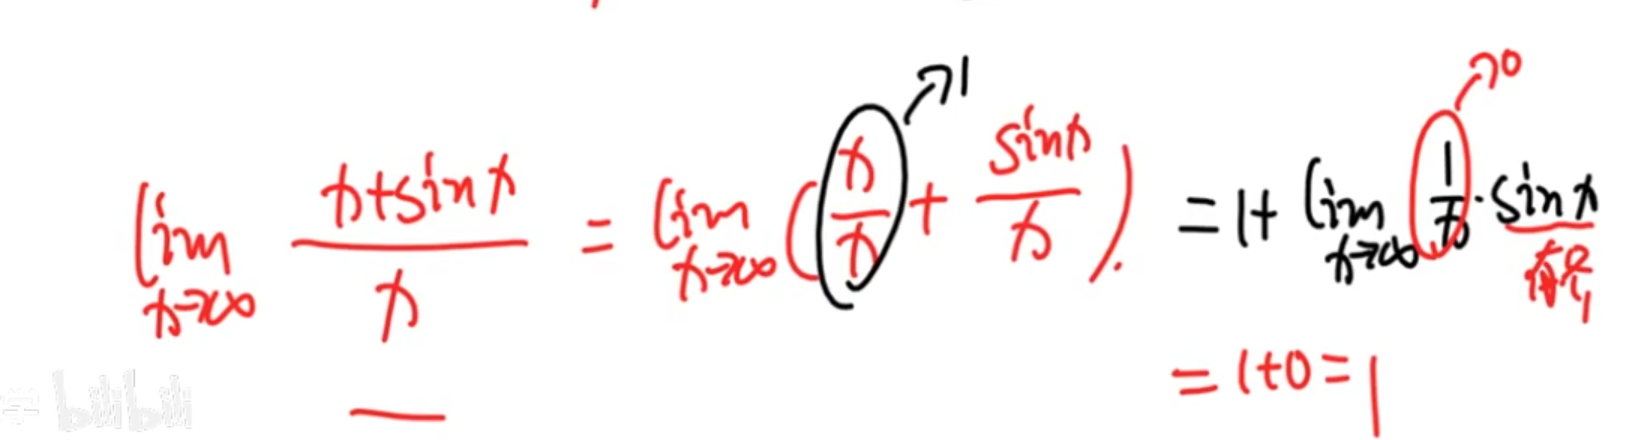 lim x→∞ (x+sinx)/x = lim x→∞ (x/x + sinx/x). = 1 + lim x→∞ 1/x · sinx
→1
→0
有界
= 1+0 = 1
bilibili